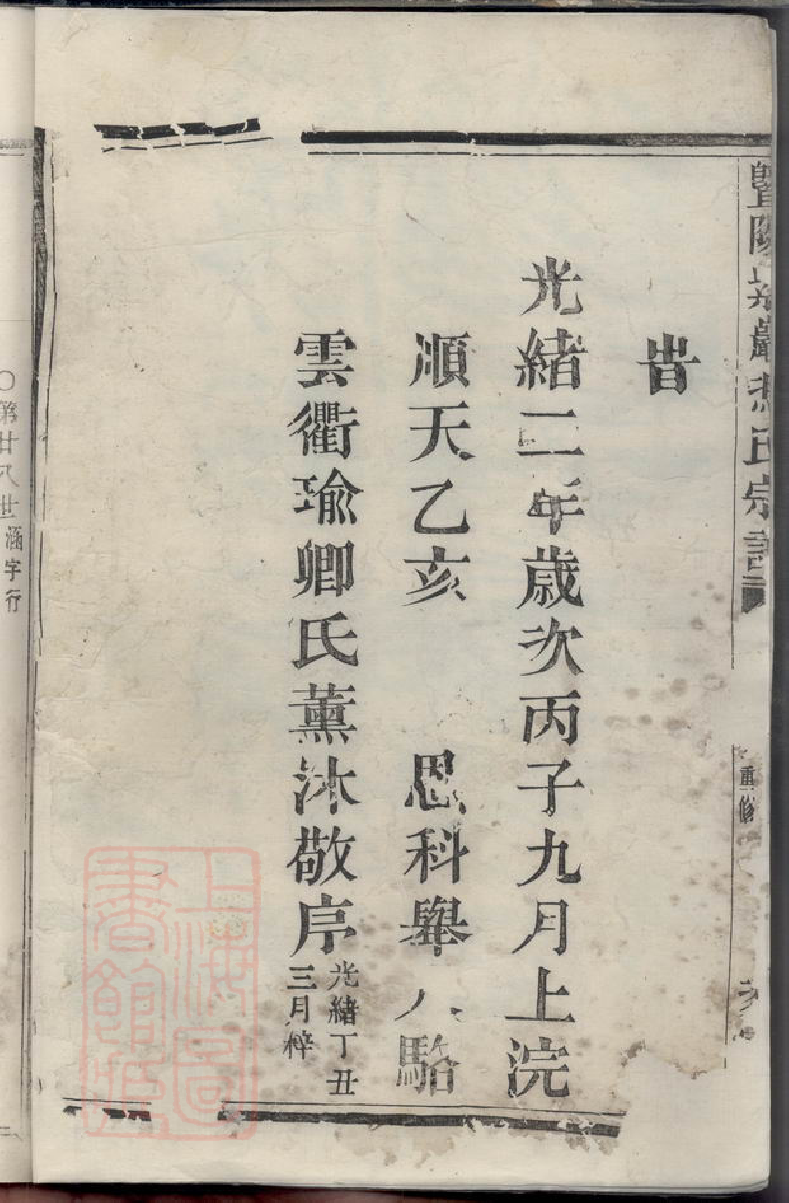 暨陽 巖 氏宗譜
重修
旹
光緒二年歲次丙子九月上浣
順天乙亥　恩科舉人駱
雲衢瑜卿氏薰沐敬序
光緒丁丑
三月梓
上海圖
書館藏
〇第廿八世涵字行